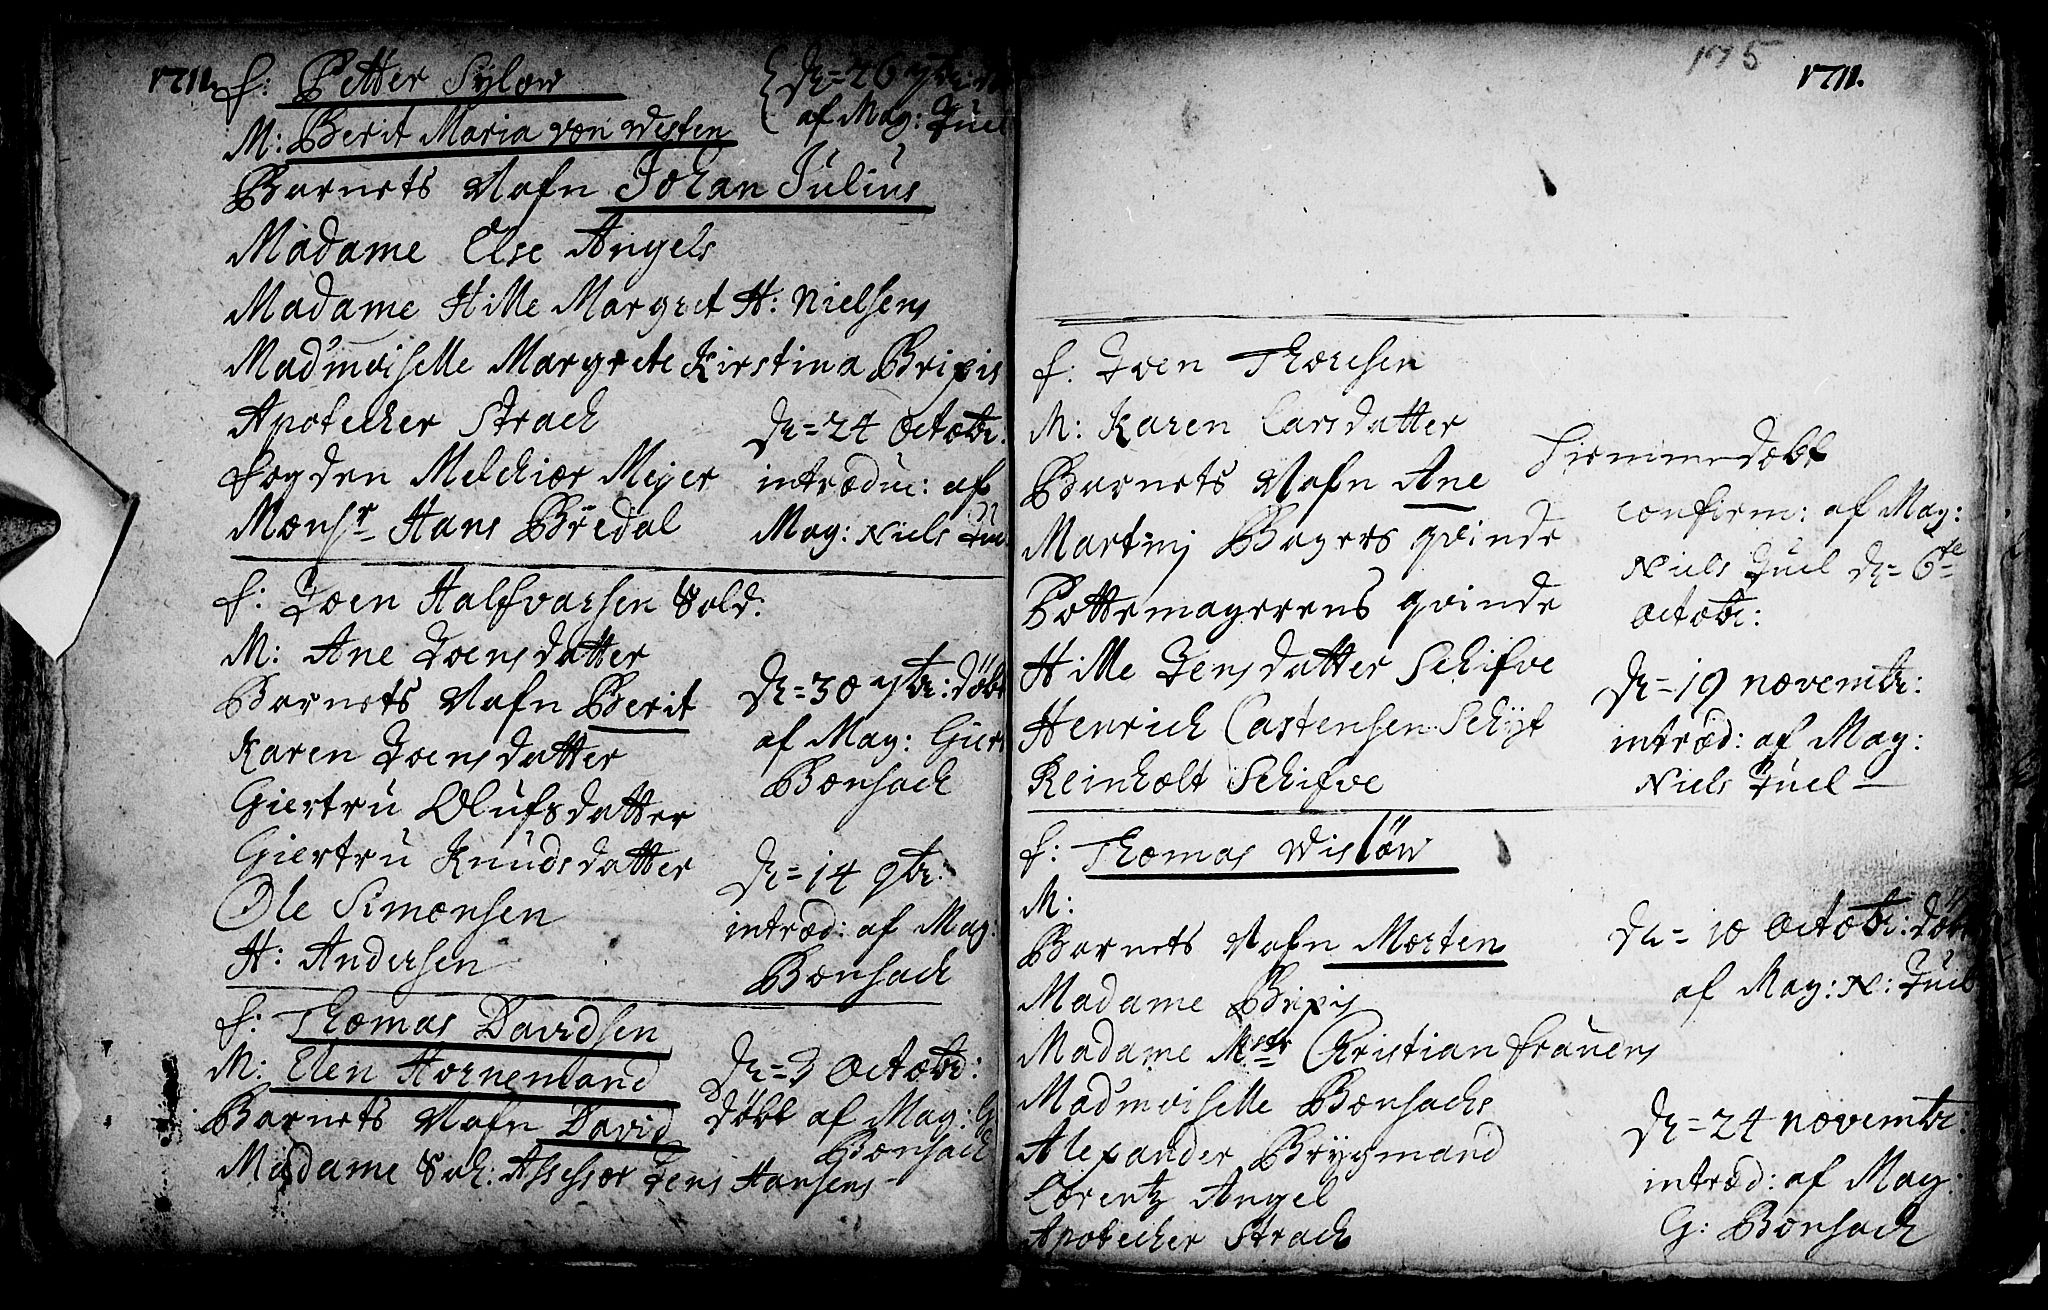 1711.
f: Petter Sylow
M: Berit Maria von Westen
d: 26 7br:
af Mag: Juel
Barnets Nafn Johan Julius
Madame Else Angels
Madame Hille Margret H: Nielsens
Mad'moiselle Margrete Kirstina Brixis
Apotecher Strach
Fogden Melchior Meyer
Monsr Hans Bredal
d: 24 Octobr:
introduc: af
Mag: Niels Juel
f: Joen Halfvarsen Sold:
M: Ane Joensdatter
Barnets Nafn Berit
Karen Joensdatter
Giertru Olufsdatter
Giertru Knudsdatter
Ole Simonsen
H: Andersen
d: 30 7br: döbt
af Mag: Giert
Bonsach
d: 14 9br:
introd: af Mag:
Bonsach
f: Thomas Davidsen
M: Elen Hornemand
Barnets Nafn David
Madame Sal: Assessor Jens Hansens
d: 3 Octobr:
döbt af Mag: G
Bonsach
175
1711.
f: Joen Thoresen
M: Karen Larsdatter
Barnets Nafn Ane
Martinj Bagers qvinde
Pottemagerens qvinde
Hille Jensdatter Schifve
Henrich Castensen Schijf
Reinholt Schifve
Hiemmedobt
confirm: af Mag:
Niels Juel d: 6te
Octobr:
d: 19 novembr:
introd: af Mag:
Niels Juel
f: Thomas Wislöw
M:
Barnets Nafn Morten
Madame Brixis
Madame Mstr Christian Frauens
Mad'moiselle Bonsachs
Alexander Brygmand
Lorentz Angel
Apotecher Strach
d: 10 Octobr: döbt
af Mag: N: Juel
d: 24 novembr:
introd: af Mag:
G: Bonsach